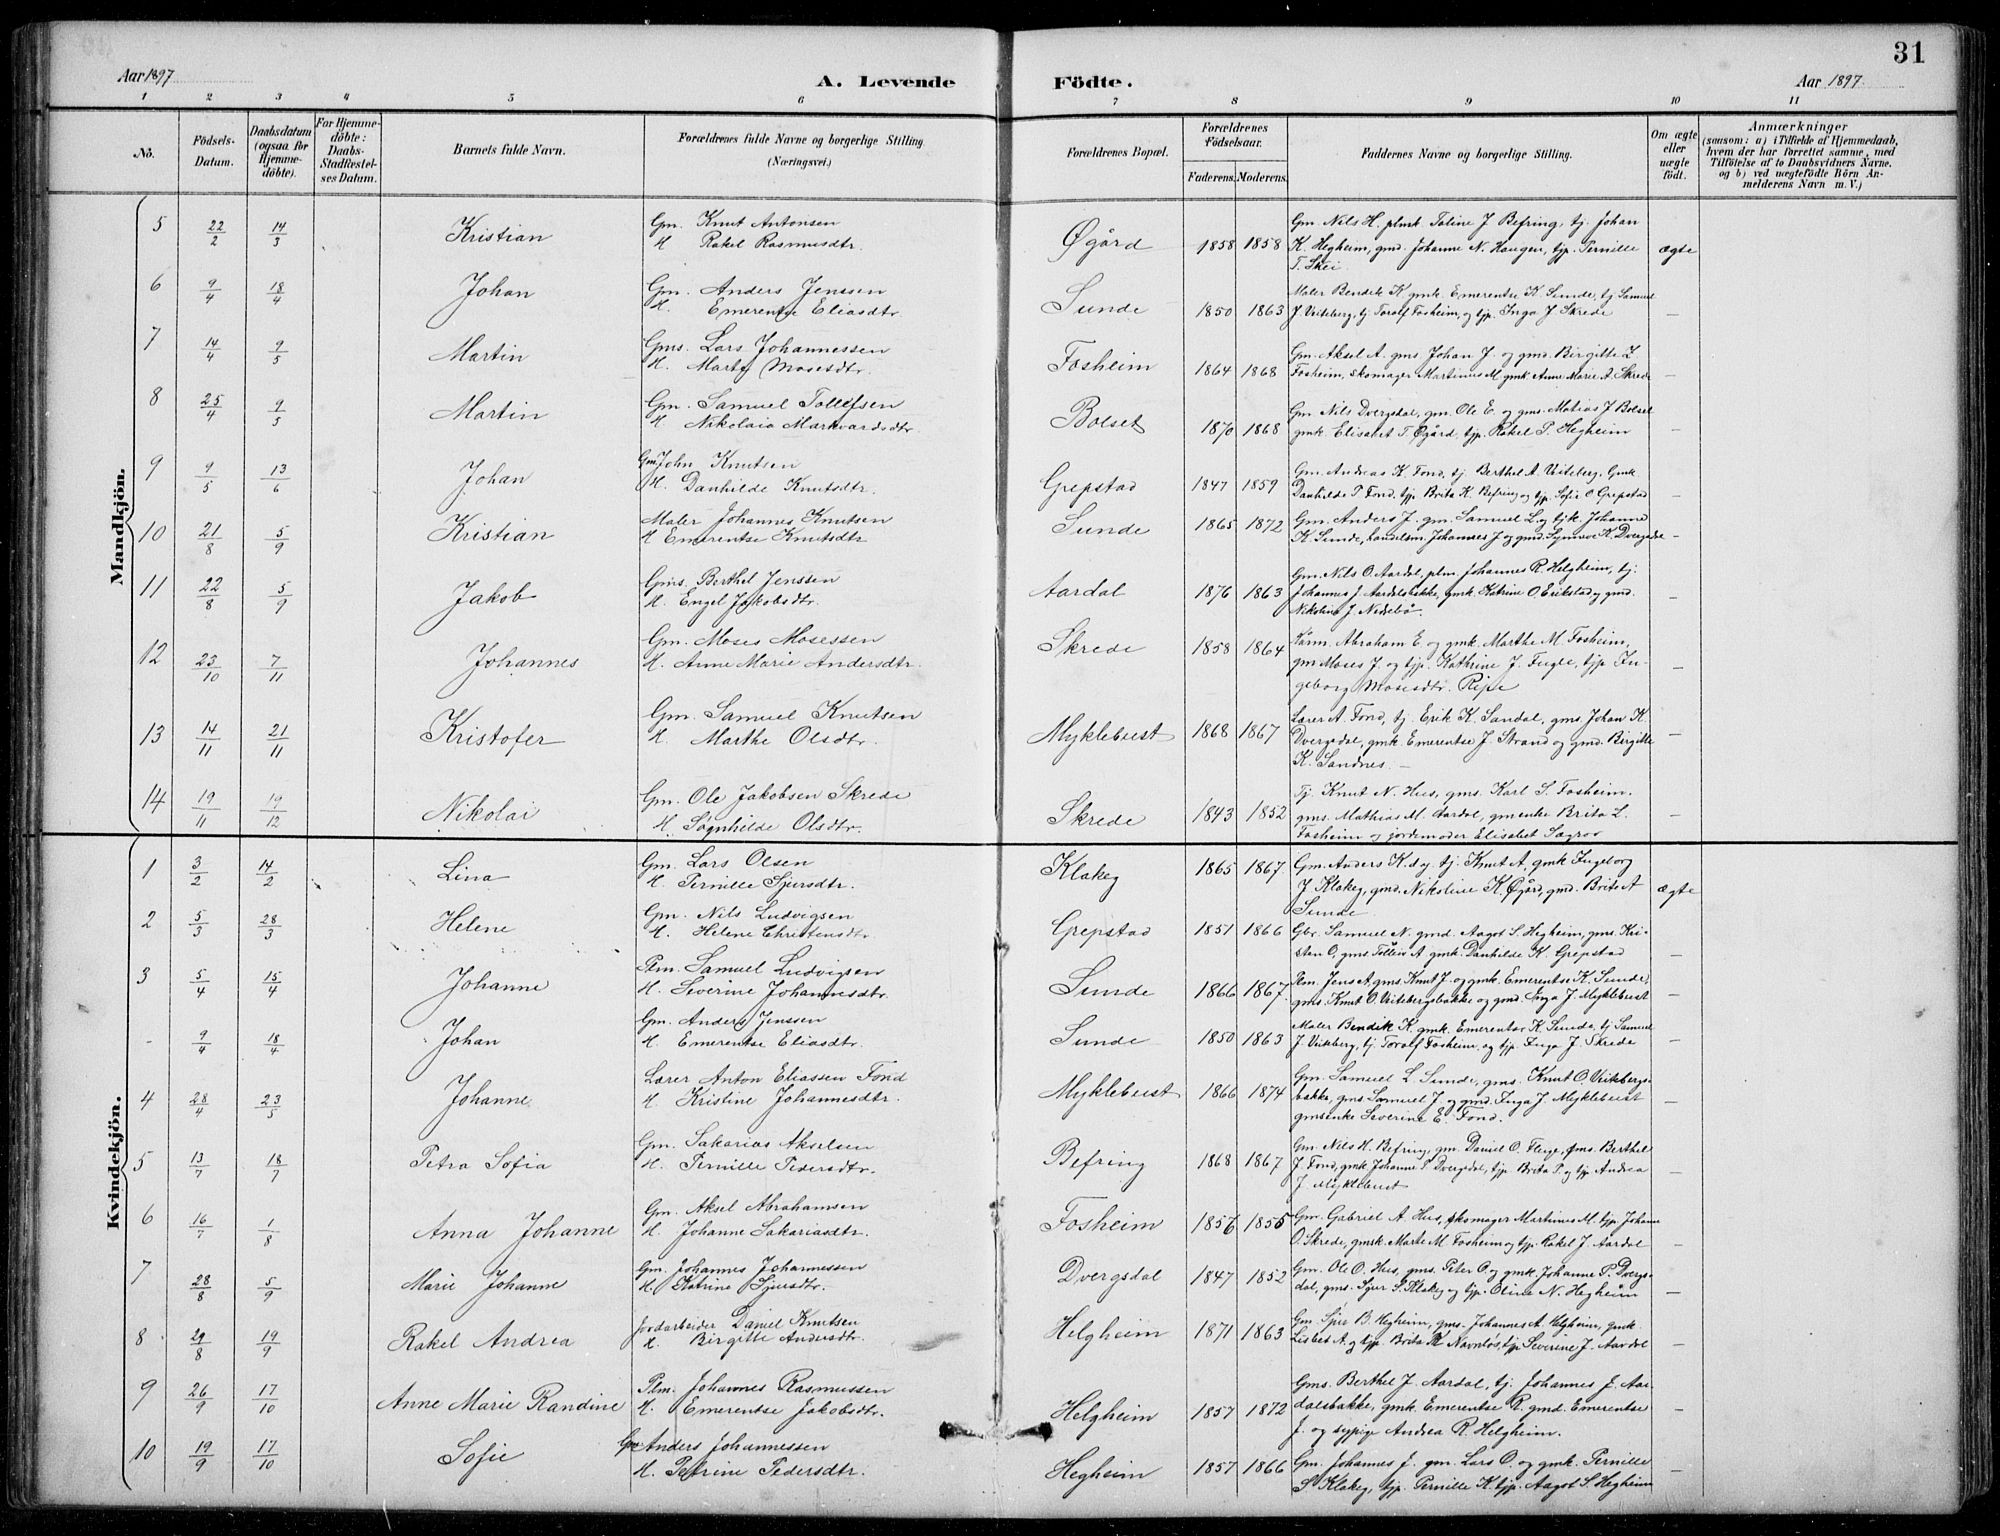 31
Aar 1897
A. Levende Födte.
Aar 1897
1 2 3 4 5 6 7 8 9 10 11
No.
Födsels-Datum.
Daabsdatum (ogsaa for Hjemme-döbte).
For Hjemme-döbte: Daabs-Stadfæstel-ses Datum.
Barnets fulde Navn.
Forældrenes fulde Navne og borgerlige Stilling.
(Næringsvei.)
Forældrenes Bopæl.
Forældrenes Födselsaar.
Faderens. Moderens.
Faddernes Navne og borgerlige Stilling.
Om ægte eller uægte födt.
Anmærkninger
(saasom: a) i Tilfælde af Hjemmedaab,
hvem der har forrettet samme, med
Tilföielse af to Daabsvidners Navne,
og b) ved uægtefödte Börn An-
melderens Navn m. V.)
Mandkjön.
5 22/2 14/3 Kristian Gm. Knut Antonsen Øgård 1858 1858 Gm Nils H. plmk Taline J Befring, tj Johan
H Rakel Rasmusdtr K. Hegheim, gmd. Johanne N. Haugen, tjp. Pernille ægte
T. Skei.
6 9/4 18/4 Johan Gm. Anders Jenssen Sunde 1850 1863 Maler Bendik K. gmk. Emerentse K. Sunde, tj Samuel
H. Emerentse Eliasdtr J Viteberg, tj Toralf Fosheim, og tjp. Inga J Skrede —
7 14/4 9/5 Martin Gms. Lars Johannessen Fosheim 1864 1868 Gm. Aksel A. gms Johan J. og gmd. Birgitte L
H. Marte Mosesdtr. Fosheim, skomager Martinus M gmk Anne Marie A. Skrede —
8 25/4 9/5 Martin Gm. Samuel Tollefsen Bolset 1870 1868 Gm Nils Dvergsdal, gm. Ole E. og gms. Matias J Bolset
H Nikolaia Markvardsdtr. gmk. Elisabet T. Øgård, tjp. Rakel P. Hegheim —
9 9/5 13/6 Johan Gm John Knutsen Grepstad 1847 1859 Gm. Andreas K. Fond, tj. Berthel A. Viteberg, Gmk
H. Danhilde Knutsdtr. Danhilde P. Fond, tjp Brita K. Befring og tjp. Sofie O Grepstad —
10 21/8 5/9 Kristian Maler Johannes Knutsen Sunde 1865 1872 Gm. Anders J. gm. Samuel L. og tjk. Johanne
H Emerentse Knutsdtr K. Sunde, handelsm. Johannes J og gmd Synneve K. Dvergsdal —
11 22/8 5/9 Jakob Gms. Berthel Jenssen Aardal 1876 1863 Gm. Nils O. Aardal, plm. Johannes R. Helgheim, tj.
H. Engel Jakobsdtr. Johannes J. Aardalsbakke, gmk. Katrine O. Eikstad og gmd.
Nikoline J. Nedrebø. —
12 23/10 7/11 Johannes Gm. Moses Mosessen Skrede 1858 1864 Abraham E. og gmk. Marthe M. Fosheim,
H. Anne Marie Andersdtr. gm Moses J. og tjp. Kathrine J. Fugle, tjp In-
geborg Mosesdtr. Ripe —
13 14/11 21/11 Kristofer Gm. Samuel Knutsen Myklebust 1868 1867 Lærer A. Fond, tj. Erik K. Sandal, gms. Johan K
H. Marthe Olsdtr. Dvergsdal, gmk. Emerentse J. Strand og gmd. Birgitte —
K. Sandnes. —
14 19/11 19/12 Nikolai Gm. Ole Jakobsen Skrede Skrede 1843 1852 Tj. Knut N. Hus, gms. Karl S. Fosheim.
H. Søgnhilde Olsdtr. gms. Mathias M. Aardal, gmenke Brita L. —
Fosheim og jordemoder Elisabet Sægrov
Kvindekjön.
1 3/2 14/2 Lina Gm. Lars Olsen Klakeg 1865 1867 Gm. Anders K. og tj. Knut A, gmk Ingeborg
H. Pernille Sjursdtr. J Klakeg, gmd. Nikoline K. Øgård, gmd. Brite A ægte
Sunde
2 5/3 28/3 Helene Gm. Nils Ludvigsen Grepstad 1851 1866 Gbr. Samuel N. gmd. Aagot S. Hegheim, gms. Kri-
H. Helene Christensdtr. sten O, gms. Tølleiv A gmk. Danhilde K. Grepstad —
3 5/4 15/4 Johanne Plm. Samuel Ludvigsen Sunde 1866 1867 Plm. Jens A, gms Knut J. og gmk. Emerentse K. Sunde,
H. Severine Johannesdtr. gms. Knut O. Vitebergsbakke og gmd. Inga J. Myklebust —
- 9/4 18/4 Johan Gm. Anders Jenssen Sunde 1850 1863 Maler Bendik K. gmk. Emerentse K Sunde, tj Samuel
H. Emerentse Eliasdtr. J. Viteberg, tj. Toralf Fosheim, og tjp. Inga J. Skrede —
4 28/4 23/5 Johanne Lærer Anton Eliassen Fond Myklebust 1866 1874 Gm. Samuel L. Sunde, gms. Knut O. Vitebergs-
H Kristine Johannesdtr. bakke, gms Samuel J. og gmd. Inga J. Myklebust —
gmsenke Severine E. Fond.
5 13/7 18/7 Petra Sofia Gm. Sakarias Akselsen Befring 1868 1867 Gm. Nils H. Befring, gm. Daniel O. Flugе, gms. Berthel
H. Pernille Pedersdtr. J. Fond, gmk Johanne P Dvergsdal, tjp Brita P. og tjp Andrea —
J. Myklebust
6 16/7 1/8 Anna Johanne Gm. Aksel Abrahamsen Fosheim 1856 1855 Gm. Gabriel A Hus, skomager Martinus M. tjp. Johanne
H. Johanne Sakariasdtr. O. Skrede, gmsk. Marte M. Fosheim og tjp. Rakel J. Aardal —
7 28/8 5/9 Marie Johanne Gm. Johannes Johannessen Dvergsdal 1847 1852 Gm. Ole O. Hus, gms. Peter O. og gmk. Johanne P. Dvergs-
H. Katrine Sjursdtr. dal, gms. Sjur S. Klakeg og tjp. Oline N. Hegheim —
8 29/8 19/9 Rakel Andrea Jordarbeider Daniel Knutsen Helgheim 1871 1863 Gm. Sjur B. Hegheim, gms. Johannes A. Helgheim, gmk.
H. Birgitte Andersdtr. Lisbet A. og tjp. Brita K Navnløs, tjp Severine J. Aardal —
9 26/9 17/10 Anne Marie Randine Plm. Johannes Rasmussen Helgheim 1857 1872 Gms. Berthel J. Aardal, tj. Johannes J. Aar-
H. Emerentse Jakobsdtr. dalsbakke, gmk Emerentse R. gmd. Emerentse —
J. og sypige Andrea R. Helgheim.
10 19/9 17/10 Sofie Gm Anders Johannessen Hegheim 1857 1866 Gm. Johannes J. gm. Lars O. og gmk. Pernille —
H. Petrine Pedersdtr. S Klakeg, tjp. Pernille K. tjp. Aagot S. Hegheim